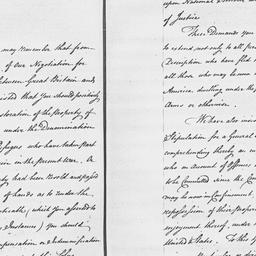 may remember that from
of Our Negotiation for
between Great Britain and
isted that you should positively
estoration of the Property of
under the Denomination
efugees who have taken Part
ain in the present War. Or
ty had been resold and passed
of hands as to render the
you should
mpensation or Indemnification
upon National Honour
of Justice
These Demands you
to extend not only to all per
Description who have fled t
all those who may be now in
America dwelling under the
Arms or otherwise.
We have also insi
Stipulation for a General
comprehending thereby an en
who on Account of Offences
to be Committed since the Com
may be now in Confinement
repossession of their proper
enjoyment thereof, under
United States. To this